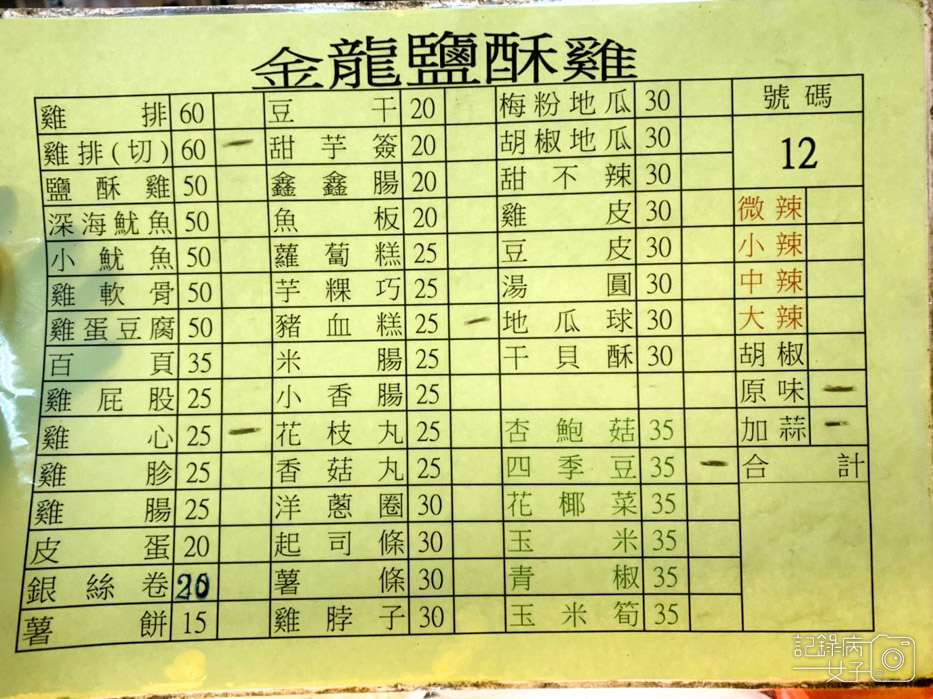 金龍鹽酥雞
雞排 60 豆干 20 梅粉地瓜 30 號碼
雞排(切) 60 甜芋簽 20 胡椒地瓜 30 12
鹽酥雞 50 鑫鑫腸 20 甜不辣 30
深海魷魚 50 魚板 20 雞皮 30 微辣
小魷魚 50 蘿蔔糕 25 豆皮 30 小辣
雞軟骨 50 芋粿巧 25 湯圓 30 中辣
雞蛋豆腐 50 豬血糕 25 地瓜球 30 大辣
百頁 35 米腸 25 干貝酥 30 胡椒
雞屁股 25 小香腸 25 原味
雞心 25 花枝丸 25 杏鮑菇 35 加蒜
雞胗 25 香菇丸 25 四季豆 35 合計
雞腸 25 洋蔥圈 30 花椰菜 35
皮蛋 20 起司條 30 玉米 35
銀絲卷 20 薯條 30 青椒 35
薯餅 15 雞脖子 30 玉米筍 35
記錄病女子